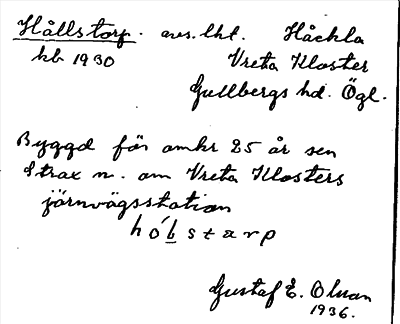 Hållstorp. avs. lht. Håckla
hb 1930 Vreta Kloster
Gullbergs hd. Ögl.
Byggd för omkr 25 år sen
Strax n. om Vreta Klosters
järnvägsstation
hó̀ḻstarp
Gustaf E. Olman
1936.